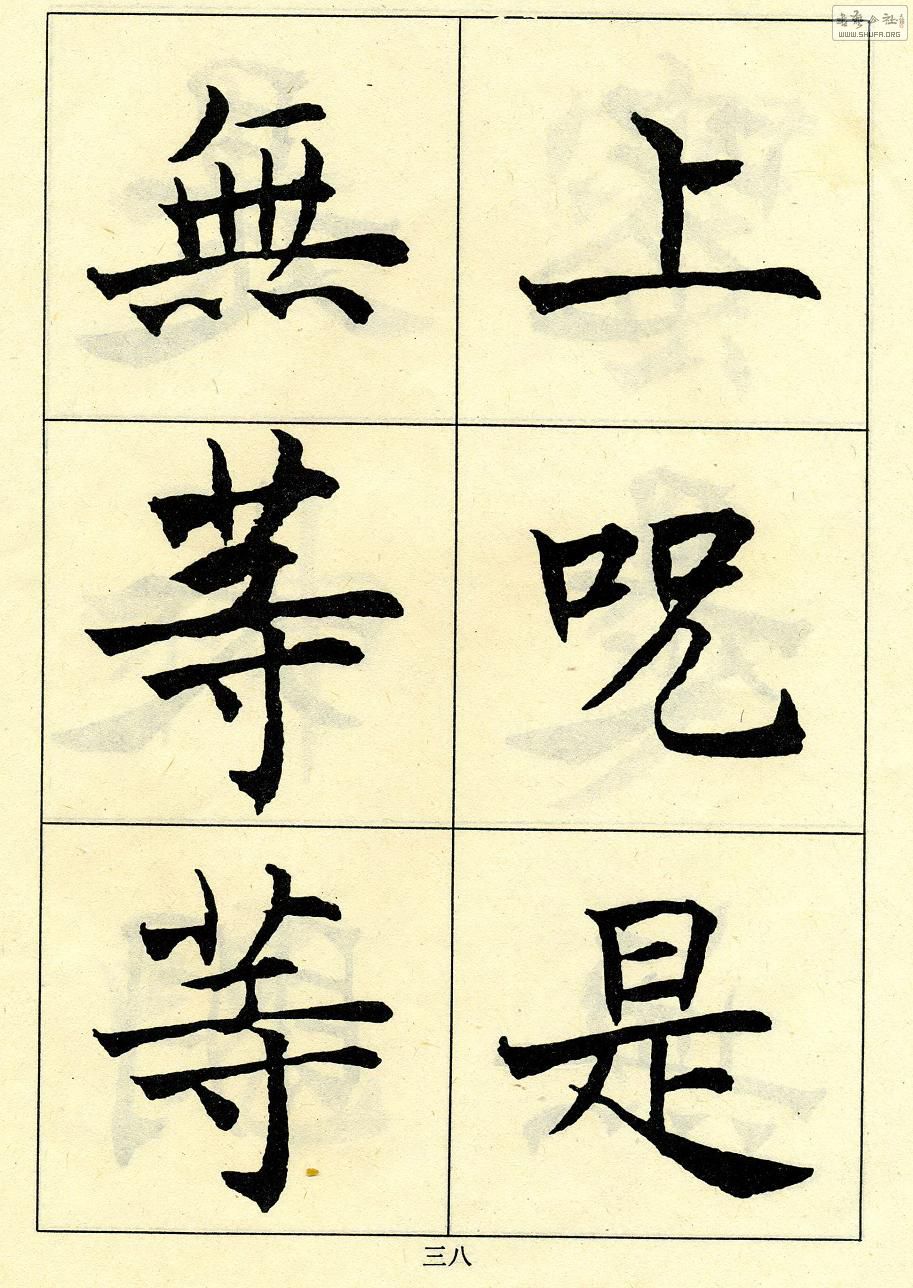 上呪是
無等等
三八
WWW.SHUFA.ORG